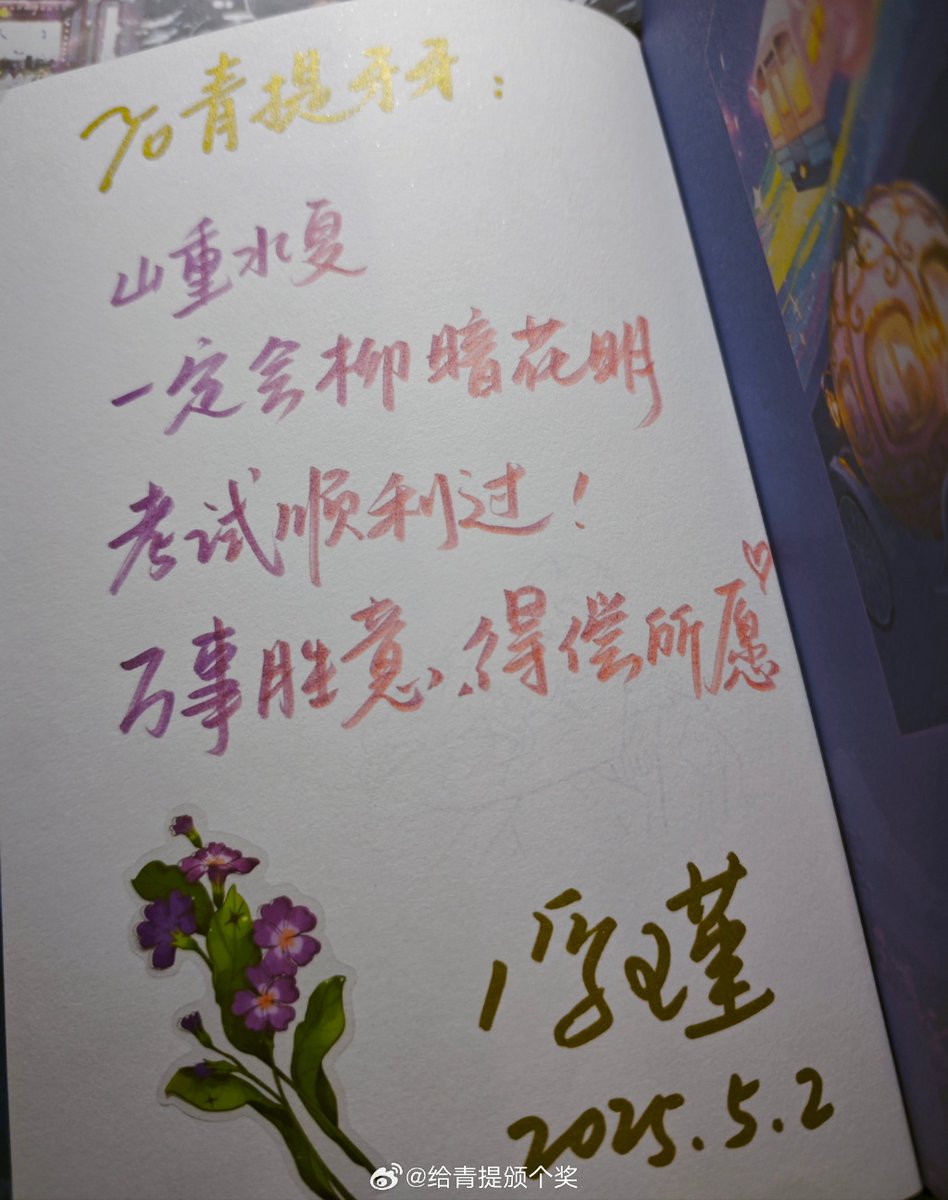 To 青提牙牙：
山重水复
一定会柳暗花明
考试顺利过！
万事胜意、得偿所愿♡
2025.5.2
@给青提颁个奖